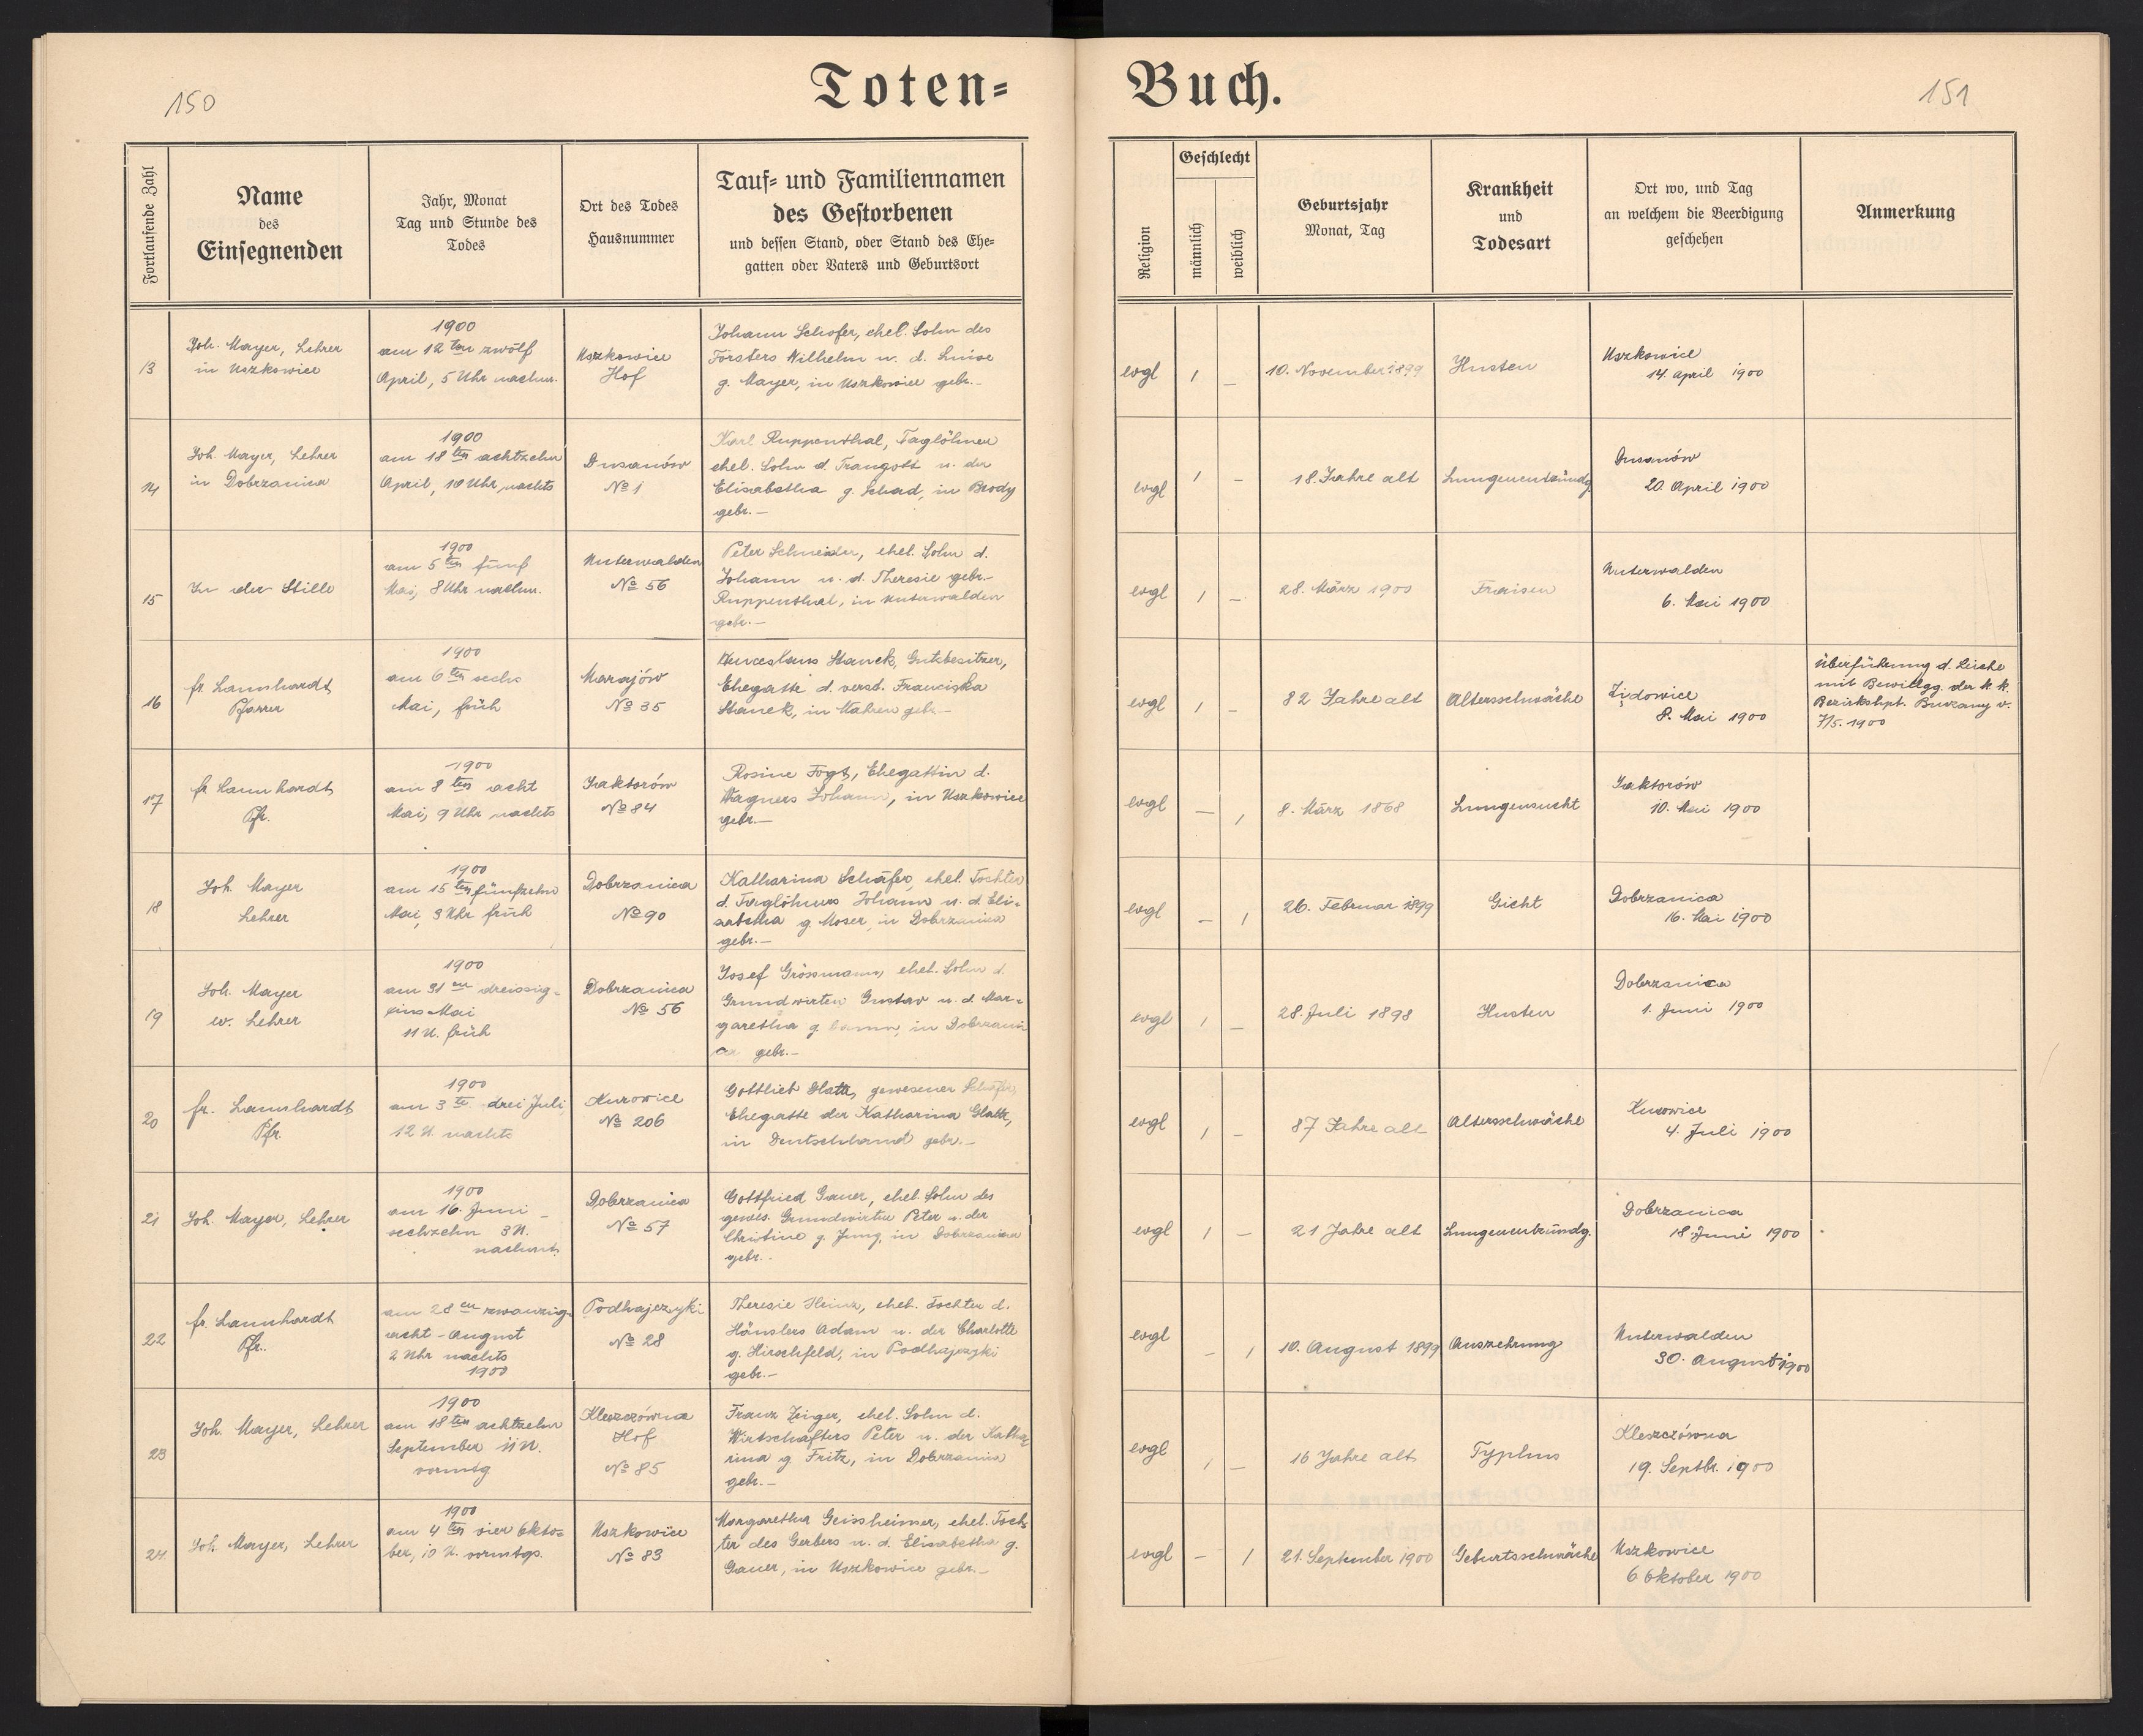 150
Toten-
Buch.
151
Fortlaufende Zahl
Name
des
Einsegnenden
Jahr, Monat
Tag und Stunde des
Todes
Ort des Todes
Hausnummer
Tauf- und Familiennamen
des Gestorbenen
und dessen Stand, oder Stand des Ehe-
gatten oder Vaters und Geburtsort
Religion
Geschlecht
männlich
weiblich
Geburtsjahr
Monat, Tag
Krankheit
und
Todesart
Ort wo, und Tag
an welchem die Beerdigung
geschehen
Anmerkung
13
Joh. Mayer, Lehrer
in Uszkowice
1900
am 12ten zwölf
April, 5 Uhr nachm.
Uszkowice
Hof
Johann Schofer, ehel. Sohn des
Försters Wilhelm u. d. Luise
g. Mayer, in Uszkowice gebr.-
evgl
1
–
10. November 1899
Husten
Uszkowice
14. April 1900
14
Joh. Mayer, Lehrer
in Dobrzanica
1900
am 18ten achtzehn
April, 10 Uhr, nachts
Dusanów
No 1
Karl Ruppenthal, Taglöhner
ehel. Sohn d. Traugott u. der
Elisabetha g. Schad, in Brody
gebr.-
evgl
1
–
18. Jahre alt
Lungenentzündg.
Dusanów
20. April 1900
15
In der Stille
1900
am 5ten fünf
Mai, 8 Uhr nachm.
Unterwalden
No 56
Peter Schneider, ehel. Sohn d.
Johann u. d. Theresie gebr.-
Ruppenthal, in Unterwalden
gebr.-
evgl
1
–
28. März 1900
Fraisen
Unterwalden
6. Mai 1900
16
fr. Lannhardt
Pfarrer
1900
am 6ten sechs
Mai, früh
Marajów
No 35
Wenceslaus Stanek, Gutsbesitzer,
Ehegatte d. verst. Franciska
Stanek, in Mähren gebr.-
evgl
1
–
82 Jahre alt
Altersschwäche
Żędowice
8. Mai 1900
überführung d. Leiche
mit Bewillgg. der k. k.
Bezirkshpt. Brzezany v.
7/5. 1900
17
fr Lannhardt
Pfr.
1900
am 8ten acht
Mai, 9 Uhr nachts
Jaktorów
No 84
Rosine Fogt, Ehegattin d.
Wagners Johann, in Uszkowice
gebr.-
evgl
–
1
8. März 1868
Lungensucht
Jaktorów
10. Mai 1900
18
Joh. Mayer
Lehrer
1900
am 15ten fünfzehn
Mai, 3 Uhr früh
Dobrzanica
No 90
Katharina Schäfer, ehel. Tochter
d. Taglöhners Johann u. d. Eli-
sabetha g. Moser, in Dobrzanica
gebr.-
evgl
–
1
26. Februar 1899
Gicht
Dobrzanica
16. Mai 1900
19
Joh. Mayer
ev. Lehrer
1900
am 31en dreissig-
eins Mai
11 U. früh
Dobrzanica
No 56
Josef Grössmann, ehel. Sohn d.
Grundwirten Gustav u. d. Mar-
garetha g. in Dobrzani
ca gebr.-
evgl
1
–
28. Juli 1898
Husten
Dobrzanica
1. Juni 1900
20
fr. Lannhardt
Pfr.
1900
am 3te. drei Juli,
12 U. nachts
Kurowice
No 206
Gottlieb Glatt, gewesener Schäfer,
Ehegatte der Katharina Glatt,
in Deutschland gebr.-
evgl
1
–
87 Jahre alt
Altersschwäche
Kurowice
4. Juli 1900
21
Joh. Mayer, Lehrer
1900
am 16. Juni -
sechzehn 3 U.
nachmt.
Dobrzanica
No 57
Gottfried Gauer, ehel. Sohn des
gewes. Grundwirten Peter u. der
Christine g. Jung, in Dobrzanica
gebr.-
evgl
1
–
21 Jahre alt
Lungenentzündg.
Dobrzanica
18. Juni 1900
22
fr. Lannhardt
Pfr.
am 28en zwanzig-
acht - August
2 Uhr nachts
1900
Podhajczyki
No 28
Theresie Heinz, ehel. Tochter d.
Häuslers Adam u. der Charlotte
g. Hirschfeld, in Podhajczyki
gebr.-
evgl
–
1
10. August 1899
Auszehrung
Unterwalden
30. August 1900
23
Joh. Mayer, Lehrer
1900
am 18ten achtzehn
September 11 U.
vormtg
Kleszczówna
Hof
No 85
Franz Zeiger, ehel. Sohn d.
Wirtschafters Peter u. der Katha-
rina g Fritz, in Dobrzanica
gebr.-
evgl
1
–
16 Jahre alt
Typhus
Kleszczówna
19. Septbr. 1900
24.
Joh. Mayer, Lehrer
1900
am 4ten vier Okto-
ber, 10 U. vormtgs.
Uszkowice
No 83
Margaretha Geissheimer, ehel. Toch-
ter des Gerbers u. d. Elisabetha g.
Gauer, in Uszkowice gebr.-
evgl
–
1
21. September 1900
Geburtsschwäche
Uszkowice
6 Oktober 1900